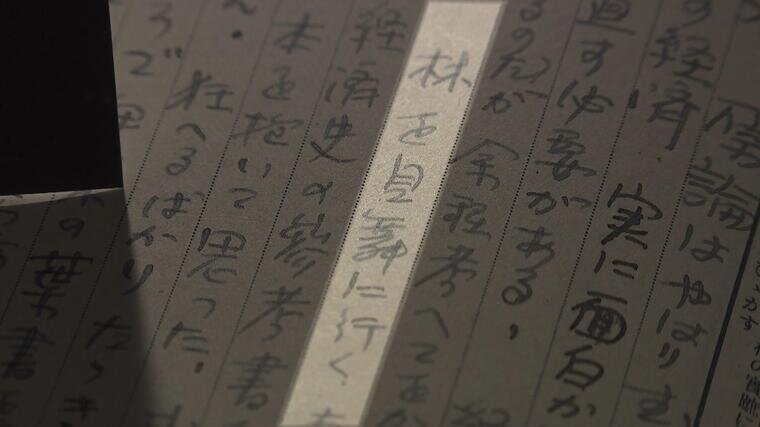 論はやはり
の経済 実に面白か
直す必要がある,
るのだが余程考へてをか
林を見舞に行く。
経済史の参考書
本を抱いて思った.
ん. 狂へるばかり
ろで
の葉書